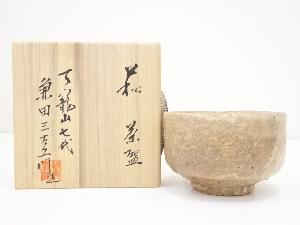 萩 茶盌
天龍山七代
兼田三左衛門造